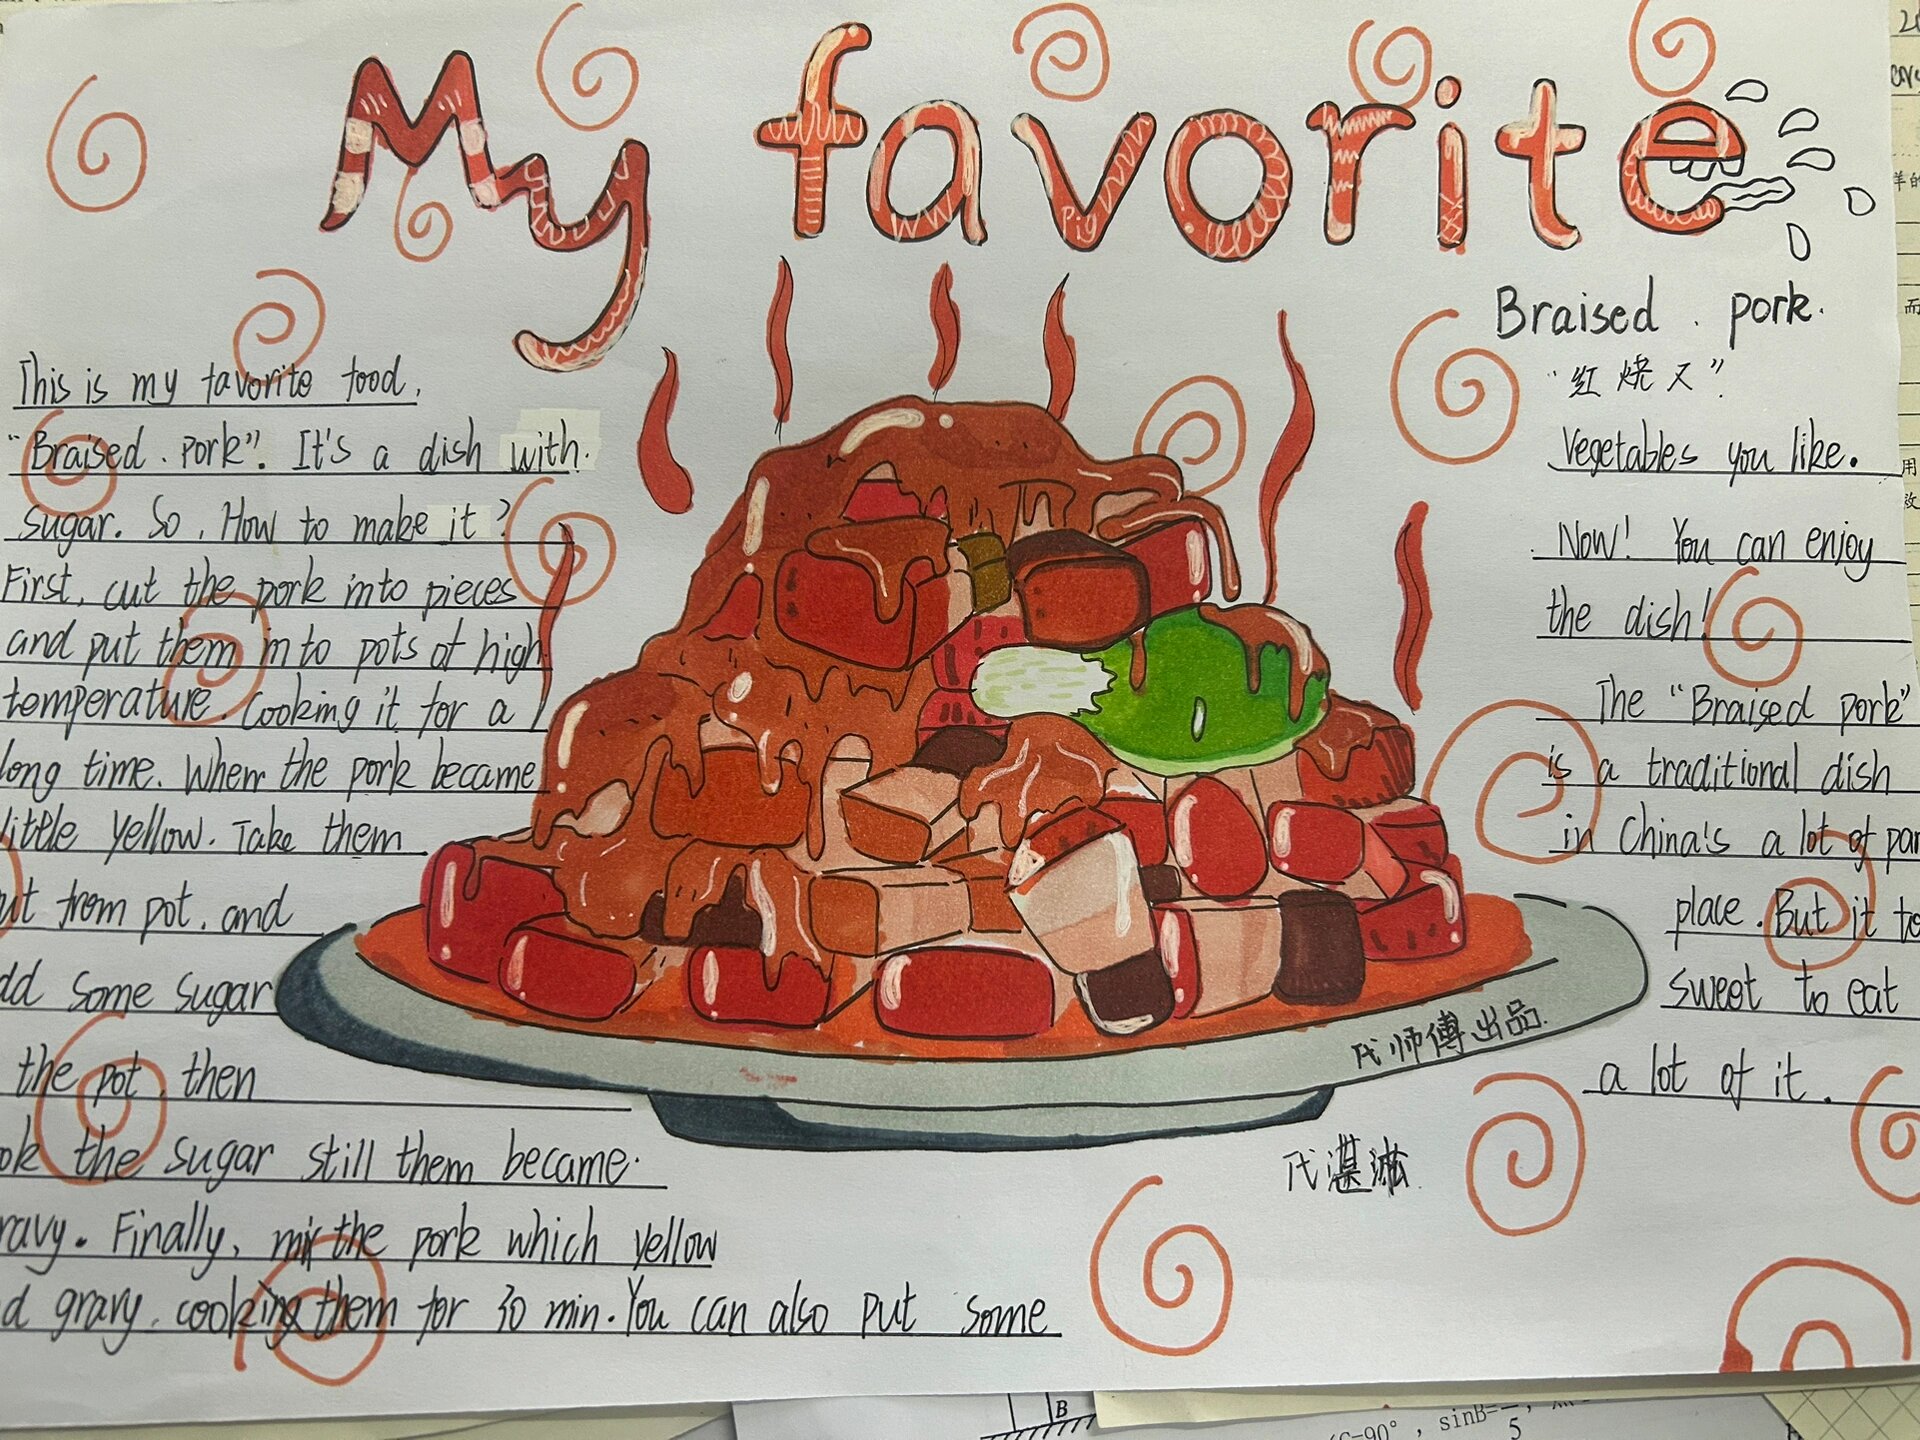 My favorite
Pig
Braised . pork.
"红烧又"
This is my favorite food.
"Braised . pork". It's a dish with.
sugar. So, How to make it?
First, cut the pork into pieces
and put them in to pots of high
temperature. Cooking it for a
long time. When the pork became
little yellow. Take them
ut from pot, and
dd some sugar
the pot, then
ok the sugar still them became.
ravy. Finally, mix the pork which yellow
d gravy. cooking them for 30 min. You can also put some
Vegetables you like.
Now! You can enjoy
the dish!
The "Braised pork"
is a traditional dish
in China's a lot of par
place. But it to
sweet to eat
a lot of it.
代师傅出品.
B
sinB=
5